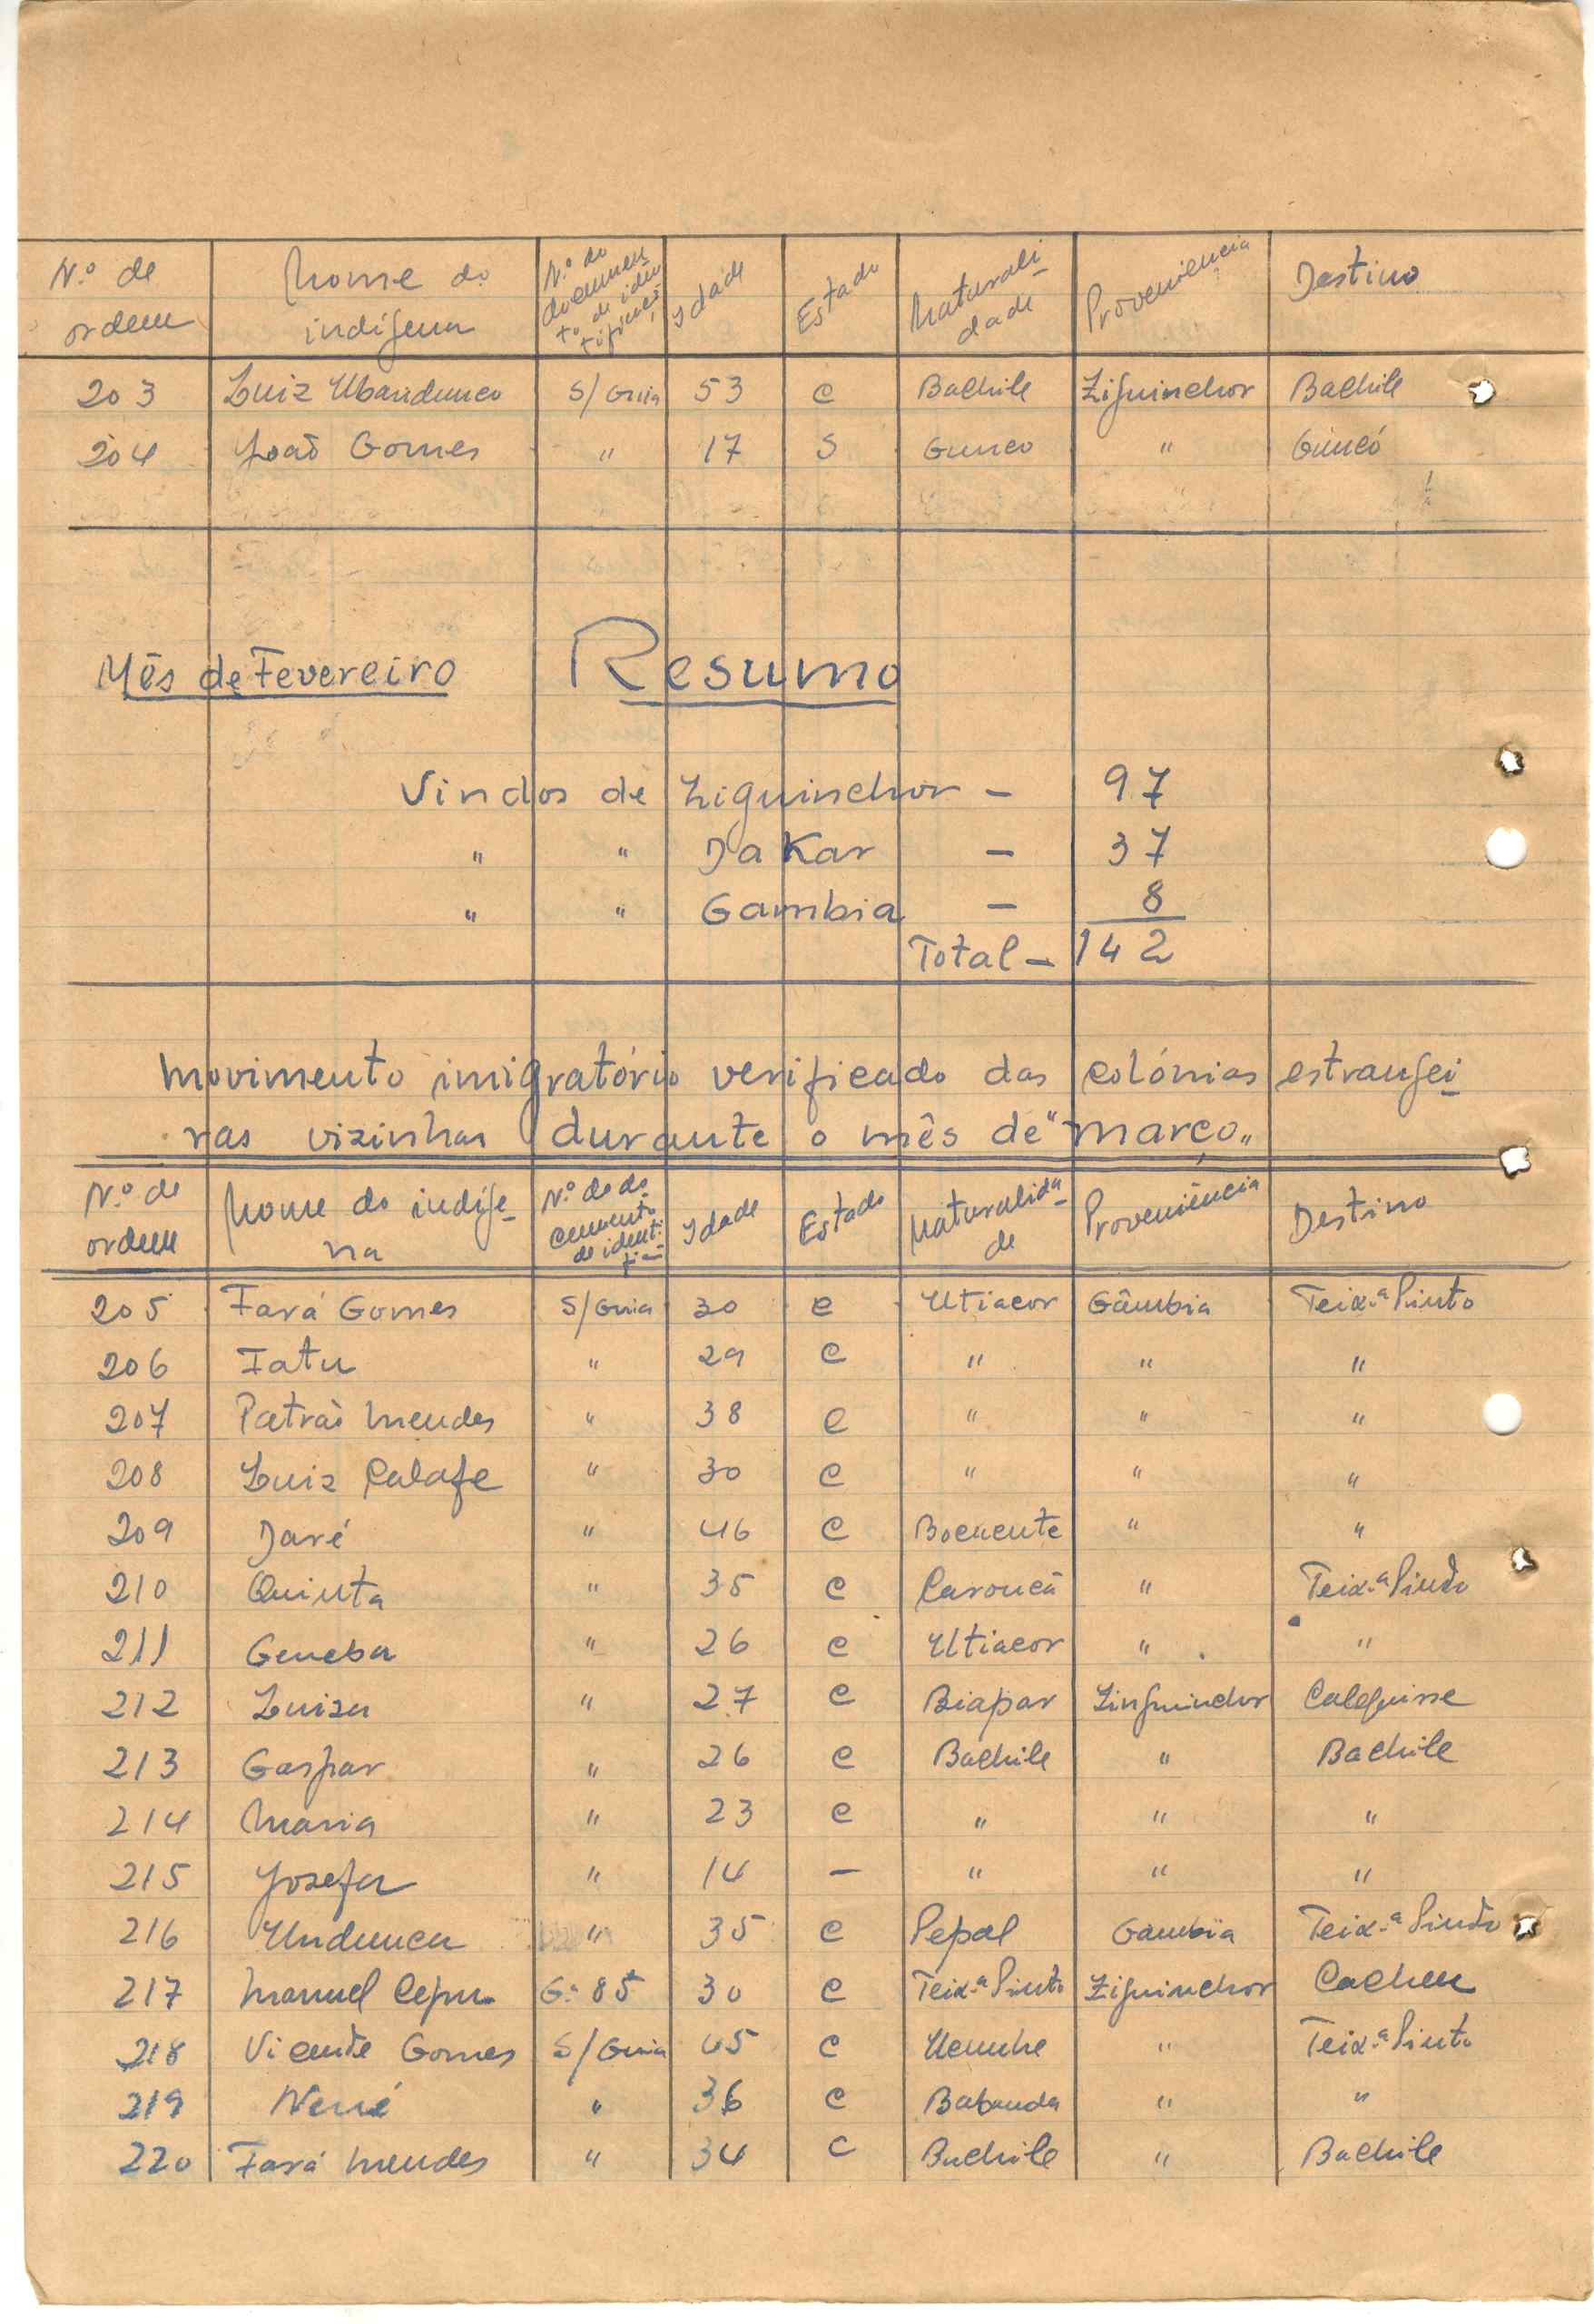 N.º de ordem | Nome do indígena | N.º do documento de identificaçã | Idade | Estado | Naturalidade | Proveniência | Destino
203 | Luiz Ubandunco | S/Guia | 53 | c | Bachile | Ziguinchor | Bachile
204 | João Gomes | " | 17 | S | Guncó | " | Guncó
Mês de Fevereiro Resumo
Vindos de Ziguinchor – 97
" " Dakar – 37
" " Gambia – 8
Total – 142
Movimento imigratório verificado das colónias estrangei-
ras vizinhas durante o mês de "Março"
N.º de ordem | Nome do indígena | N.º do documento de identifi | Idade | Estado | Naturalidade | Proveniência | Destino
205 | Fará Gomes | S/Guia | 30 | c | Utiacor | Gâmbia | Teix.ª Pinto
206 | Fatu | " | 29 | c | " | " | "
207 | Patrão Mendes | " | 38 | c | " | " | "
208 | Luiz Calafe | " | 30 | c | " | " | "
209 | Daré | " | 46 | c | Bocucute | " | "
210 | Quinta | " | 35 | c | Caroucã | " | Teix.ª Pinto
211 | Geneba | " | 26 | c | Utiacor | " | "
212 | Luiza | " | 27 | c | Biapar | Zinguinchor | Calequisse
213 | Gaspar | " | 26 | c | Bachile | " | Bachile
214 | Maria | " | 23 | c | " | " | "
215 | Josefa | " | 14 | – | " | " | "
216 | Undunca | " | 35 | c | Pepal | Gambia | Teix.ª Pinto
217 | Manuel | G.ª 85 | 30 | c | Teix.ª Pinto | Ziguinchor | Cacheu
218 | Vicente Gomes | S/Guia | 45 | c | " | Teix.ª Pinto
219 | Nené | " | 36 | c | Babanda | " | "
220 | Fará Mendes | " | 34 | c | Bachile | " | Bachile